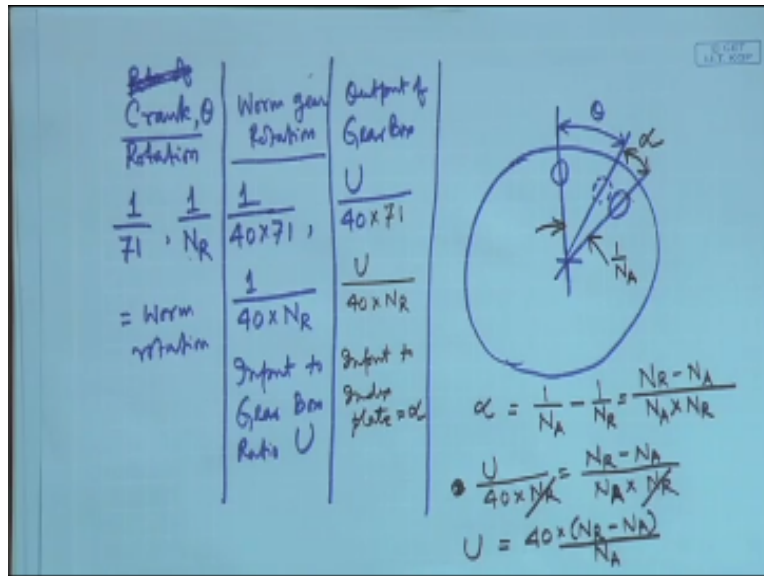 Crank, θ
Rotation
1/71 , 1/NR
= Worm
rotation
Worm gear
Rotation
1/40×71 ,
1/40×NR
Input to
Gear Box
Ratio U
Output of
Gear Box
U/40×71
U/40×NR
Input to
Index
plate = α
© CET
I.I.T. KGP
θ
α
1/NA
α = 1/NA - 1/NR = NR-NA/NA×NR
U/40×NR = NR-NA/NA×NR
U = 40×(NR-NA)/NA